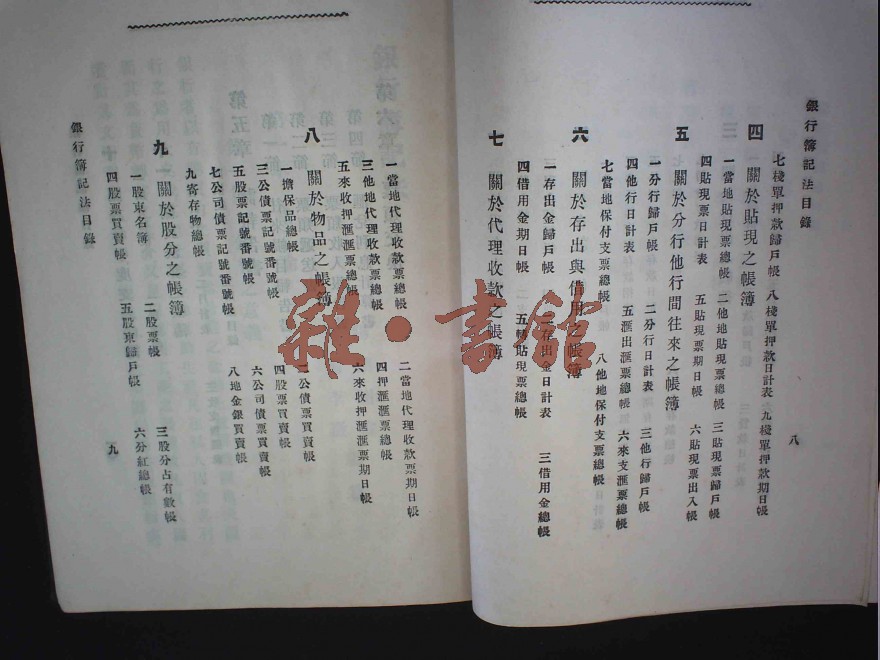 銀行簿記法目錄
八
七棧單押款歸戶帳 八棧單押款日計表 九棧單押款期日帳
四 關於貼現之帳簿
一當地貼現票總帳 二他地貼現票總帳 三貼現票歸戶帳
四貼現票日計表 五貼現票期日帳 六貼現票出入帳
五 關於分行他行間往來之帳簿
一分行歸戶帳 二分行日計表 三他行歸戶帳
四他行日計表 五滙出滙票總帳 六來支滙票總帳
七當地保付支票總帳 八他地保付支票總帳
六 關於存出與借用之帳簿
一存出金歸戶帳 二存出金日計表 三借用金總帳
四借用金期日帳 五轉貼現票總帳
七 關於代理收款之帳簿
一當地代理收款票總帳 二當地代理收款票期日帳
三他地代理收款票總帳 四押滙滙票總帳
五來收押滙滙票總帳 六來收押滙滙票期日帳
八 關於物品之帳簿
一擔保品總帳 二公債票買賣帳
三公債票記號番號帳 四股票買賣帳
五股票記號番號帳 六公司債票買賣帳
七公司債票記號番號帳 八地金銀買賣帳
九寄存物總帳
九 關於股分之帳簿
一股東名簿 二股票帳 三股分占有數帳
四股票買賣帳 五股東歸戶帳 六分紅總帳
銀行簿記法目錄
九
雜·書館